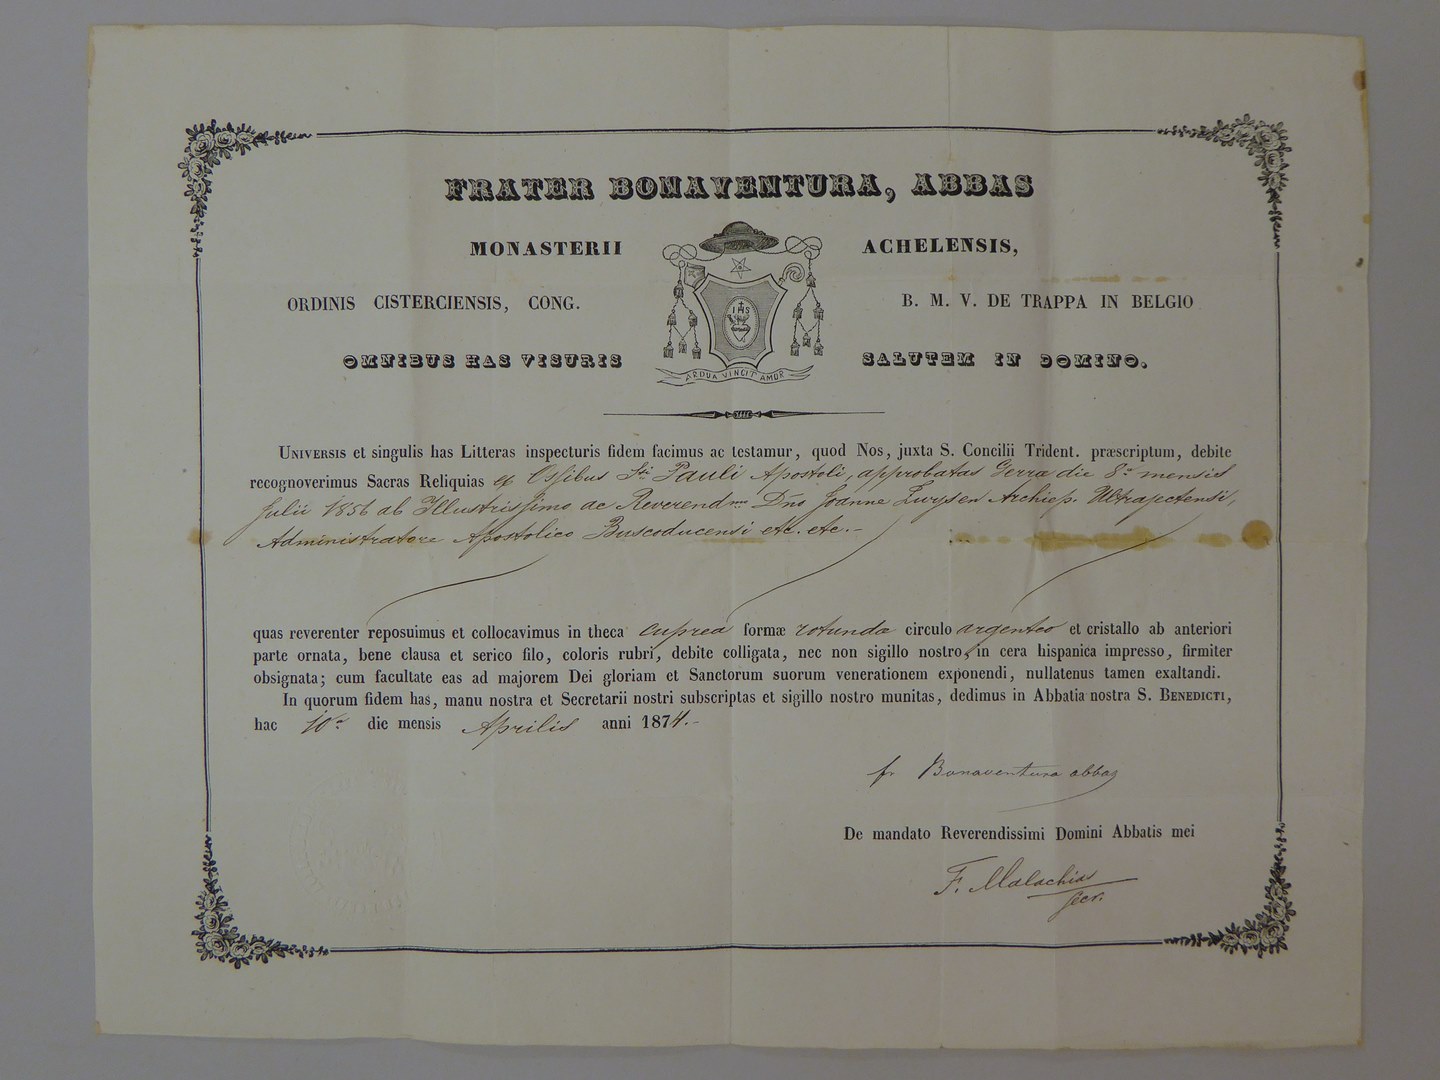 FRATER BONAVENTURA, ABBAS
MONASTERII ACHELENSIS,
ORDINIS CISTERCIENSIS, CONG. B. M. V. DE TRAPPA IN BELGIO
OMNIBUS HAS VISURIS SALUTEM IN DOMINO.
IHS
ARDUA VINCIT AMOR
UNIVERSIS et singulis has Litteras inspecturis fidem facimus ac testamur, quod Nos, juxta S. Concilii Trident. præscriptum, debite
recognoverimus Sacras Reliquias ex Ossibus Sti Pauli Apostoli, approbatas die 8a mensis
Julii 1856 ab Illustrissimo ac Reverendmo Dño Joanne Zwysen Archiep. Ultrajectensi,
Administratore Apostolico Buscoducensi etc. etc.-
quas reverenter reposuimus et collocavimus in theca cuprea formæ rotundæ circulo argenteo et cristallo ab anteriori
parte ornata, bene clausa et serico filo, coloris rubri, debite colligata, nec non sigillo nostro, in cera hispanica impresso, firmiter
obsignata; cum facultate eas ad majorem Dei gloriam et Sanctorum suorum venerationem exponendi, nullatenus tamen exaltandi.
In quorum fidem has, manu nostra et Secretarii nostri subscriptas et sigillo nostro munitas, dedimus in Abbatia nostra S. BENEDICTI,
hac 10a die mensis Aprilis anni 1874.-
fr Bonaventura abbas
De mandato Reverendissimi Domini Abbatis mei
F. Malachias
Secr.